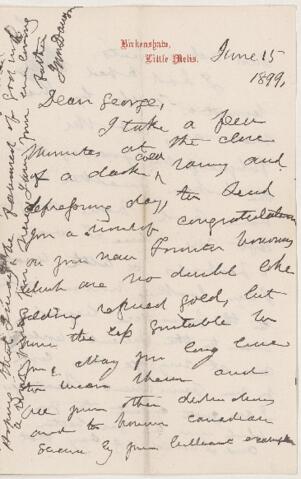 Birkenshaw,
Little Metis.
June 15
1899,
Dear George,
I take a few
minutes at the close
of a dark, cold rainy and
depressing day, to send
you a word of congratulation
on your new Toronto honours
which are no doubt like
gilding refined gold, but
none the less suitable to
you. May you long live
to wear them and
see your other distinctions
and to honour Canadian
Science by your brilliant example
Hoping that Louise & the
father